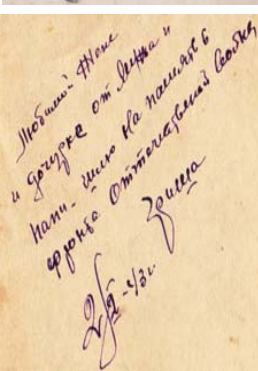 Любимой Жене
и дочурке от Мужа и
папи - шлю на память с
фронта Оттечественной войны
Гриша
-43г.